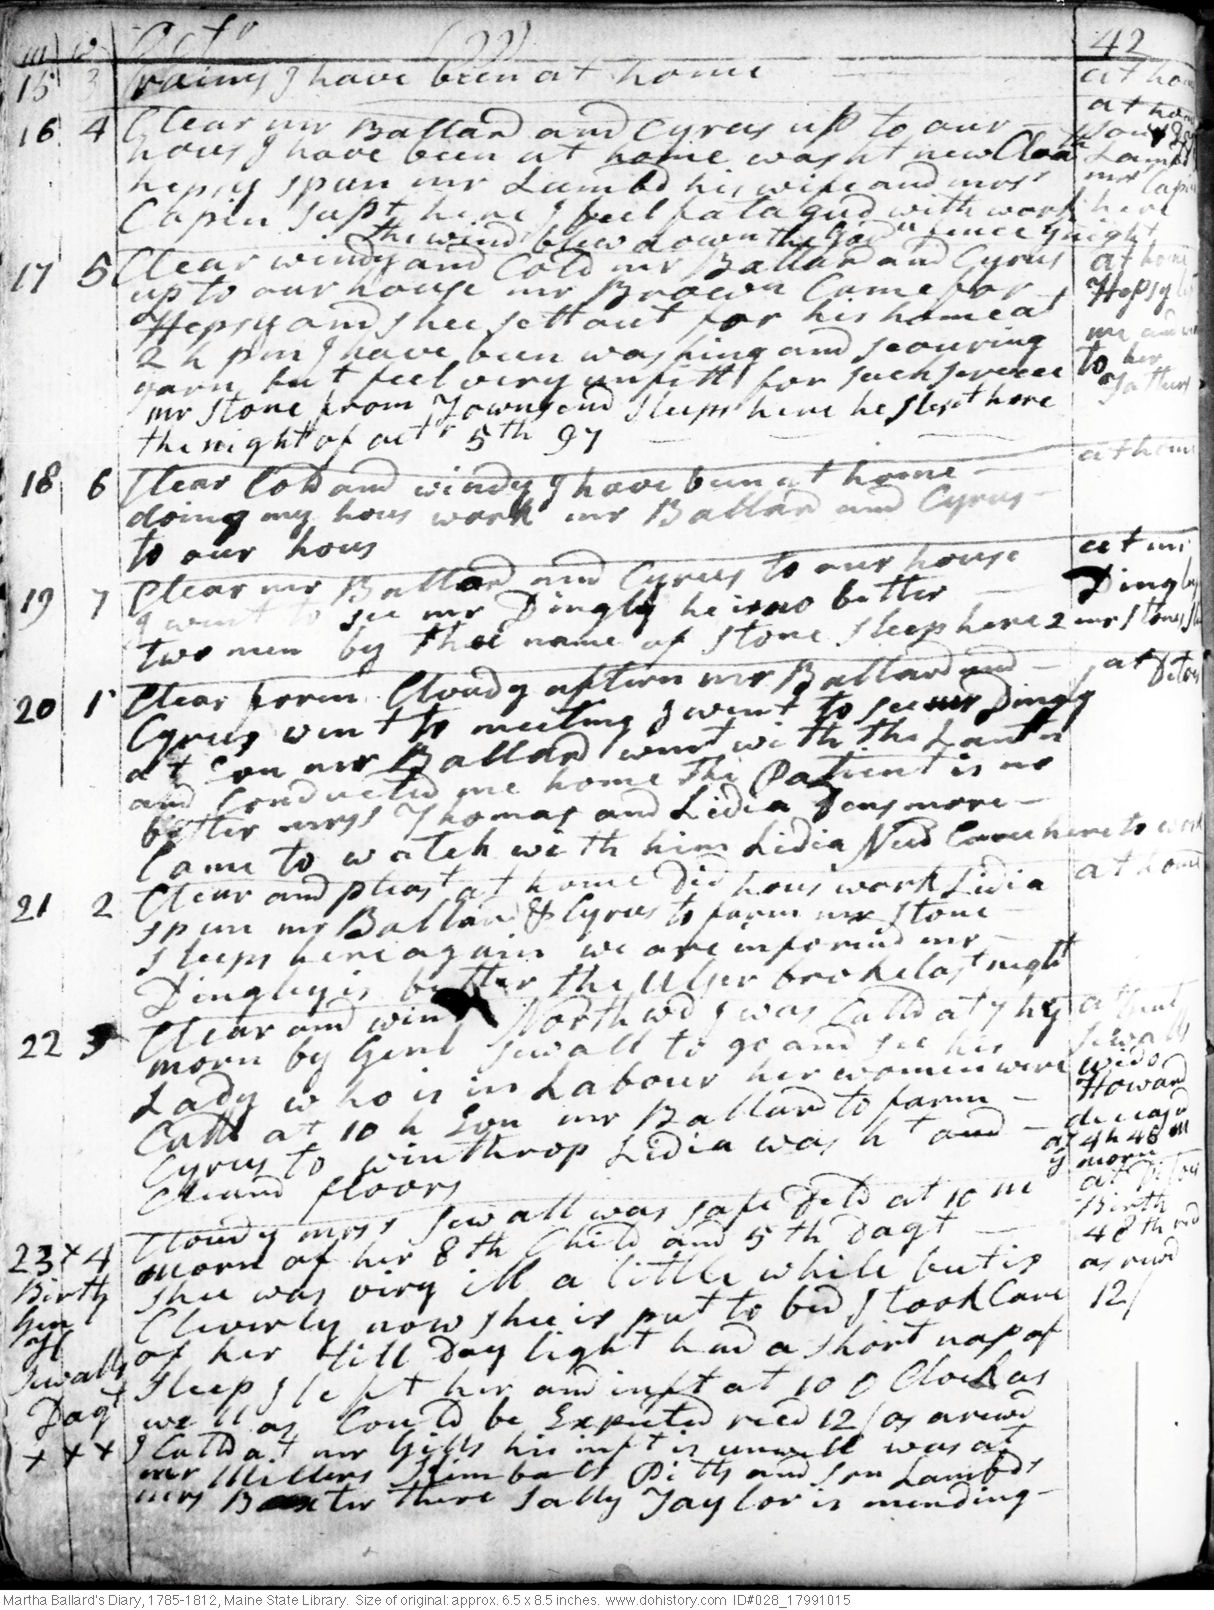 m w Oct r (99) 42
15 3 rainy I have been at home at hom
16 4 Clear mr Ballard and Cyrus up to our at hom
hous I have been at home washt new Cloa
hepsy spun mr Lambd his wife and mrss mrs Capin
Capin supt here I feel fatagud with work here
the wind blew down the fence y night
17 5 Clear windy and Cold mr Ballard and Cyrus at home
up to our house mr Brown Came for Hepsy
Hepsy and shee sett out for his home at
2 h pm I have been washing and scouring to her
yarn but feel very unfitt for such service Fathers
mr Stone from Townsend sleeps here he slept here
the night of oct r 5th 97
18 6 Clear Cold and windy I have been at home at home
doing my hous work mr Ballard and Cyrus
to our hous
19 7 Clear mr Ballard and Cyrus to our house at mr
I went to see mr Dingly he is no better Dingly
two men by the name of Stone sleep here 2 mr Stones
20 1 Clear foren Cloudy aftern mr Ballard and at Ditos
Cyrus went to meeting I went to see mr Dingly
at Evn mr Ballard went with the Lantn
and Conducted me home the Patient is no
better mrss Thomas and Lidia Densmore
Came to watch with him Lidia Need Came here to work
21 2 Clear and pleast at home Did hous work Lidia at home
spun mr Ballard & Cyrus to farm mr Stone
sleeps here again we are informd mr
Dingley is better the Ulser broke last night
22 3 Clear and windy North wd I was Calld at 7 h y at Genl
morn by Genl Sewall to go and see his Sewalls
Lady who is in Labour her women were wido
Calld at 10 h Evn mr Ballard to farm Howard
Cyrus to Winthrop Lidia washt and deceasd
Cleand floors at 4 h 48 m
y morn
23 x 4 Cloudy mrss Sewall was safe Deld at 10 m at Ditos
Birth morn of her 8th Child and 5th Dagt Birth
Genl shee was viry ill a little while but is 48th recd
H Cleverly now shee is put to bed I took Care as rewd
Sewalls of her till Day light had a short nap of 12/
Dagt sleep I left her and inft at 10 O Clock as
x x x well as Could be Expected recd 12/ as a rewd
I Calld at mr Gills his inft is unwell was at
mr Millers Kimbals Pitts and son Lambds
mrs Baxter there Sally Taylor is mending
Martha Ballard's Diary, 1785-1812, Maine State Library. Size of original: approx. 6.5 x 8.5 inches. www.dohistory.com ID#028_17991015